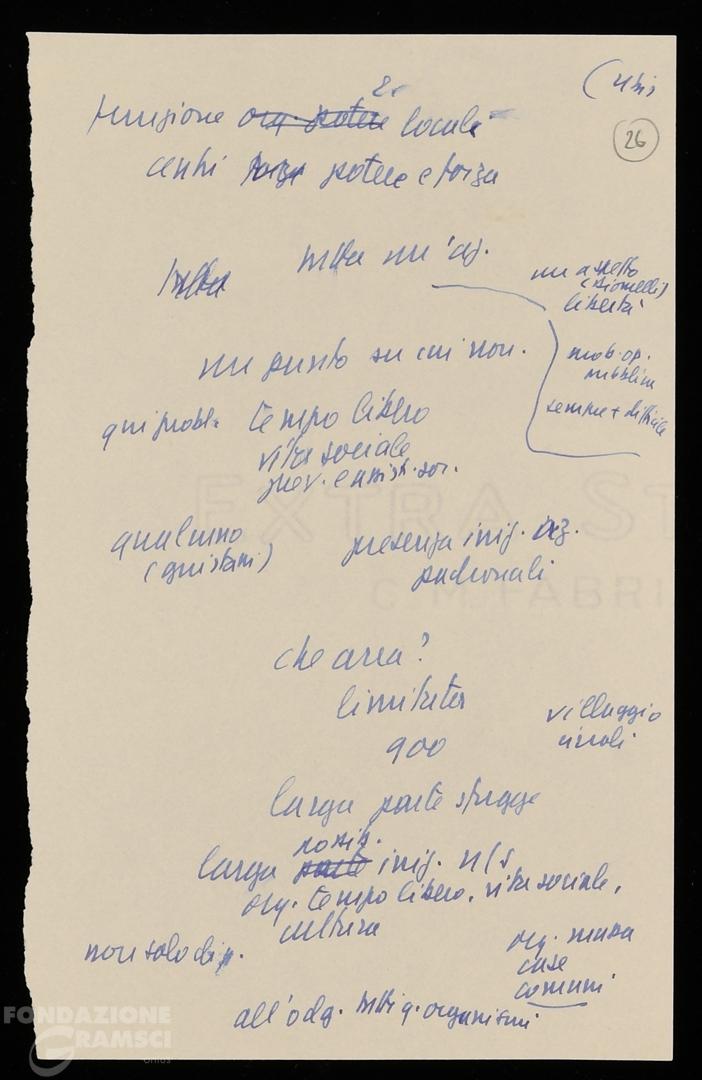 26
funzione org. potere locale
centri forza potere e forza
tutta un'az.
un aspetto
libertà
un punto su cui non.
mob. op.
pubblica
sempre + difficile
qui probl. tempo libero
vita sociale
prev. e assist. soc.
qualcuno
presenza iniz. az.
padronali
che area?
900
villaggio
circoli
larga parte sfugge
possib.
larga parte iniz. n/s
org. tempo libero, vita sociale,
cultura
non solo dip.
org. massa
case
comuni
all'odg. tutti q. organismi
EXTRA ST
C.M. FABRI
FONDAZIONE
GRAMSCI
onlus